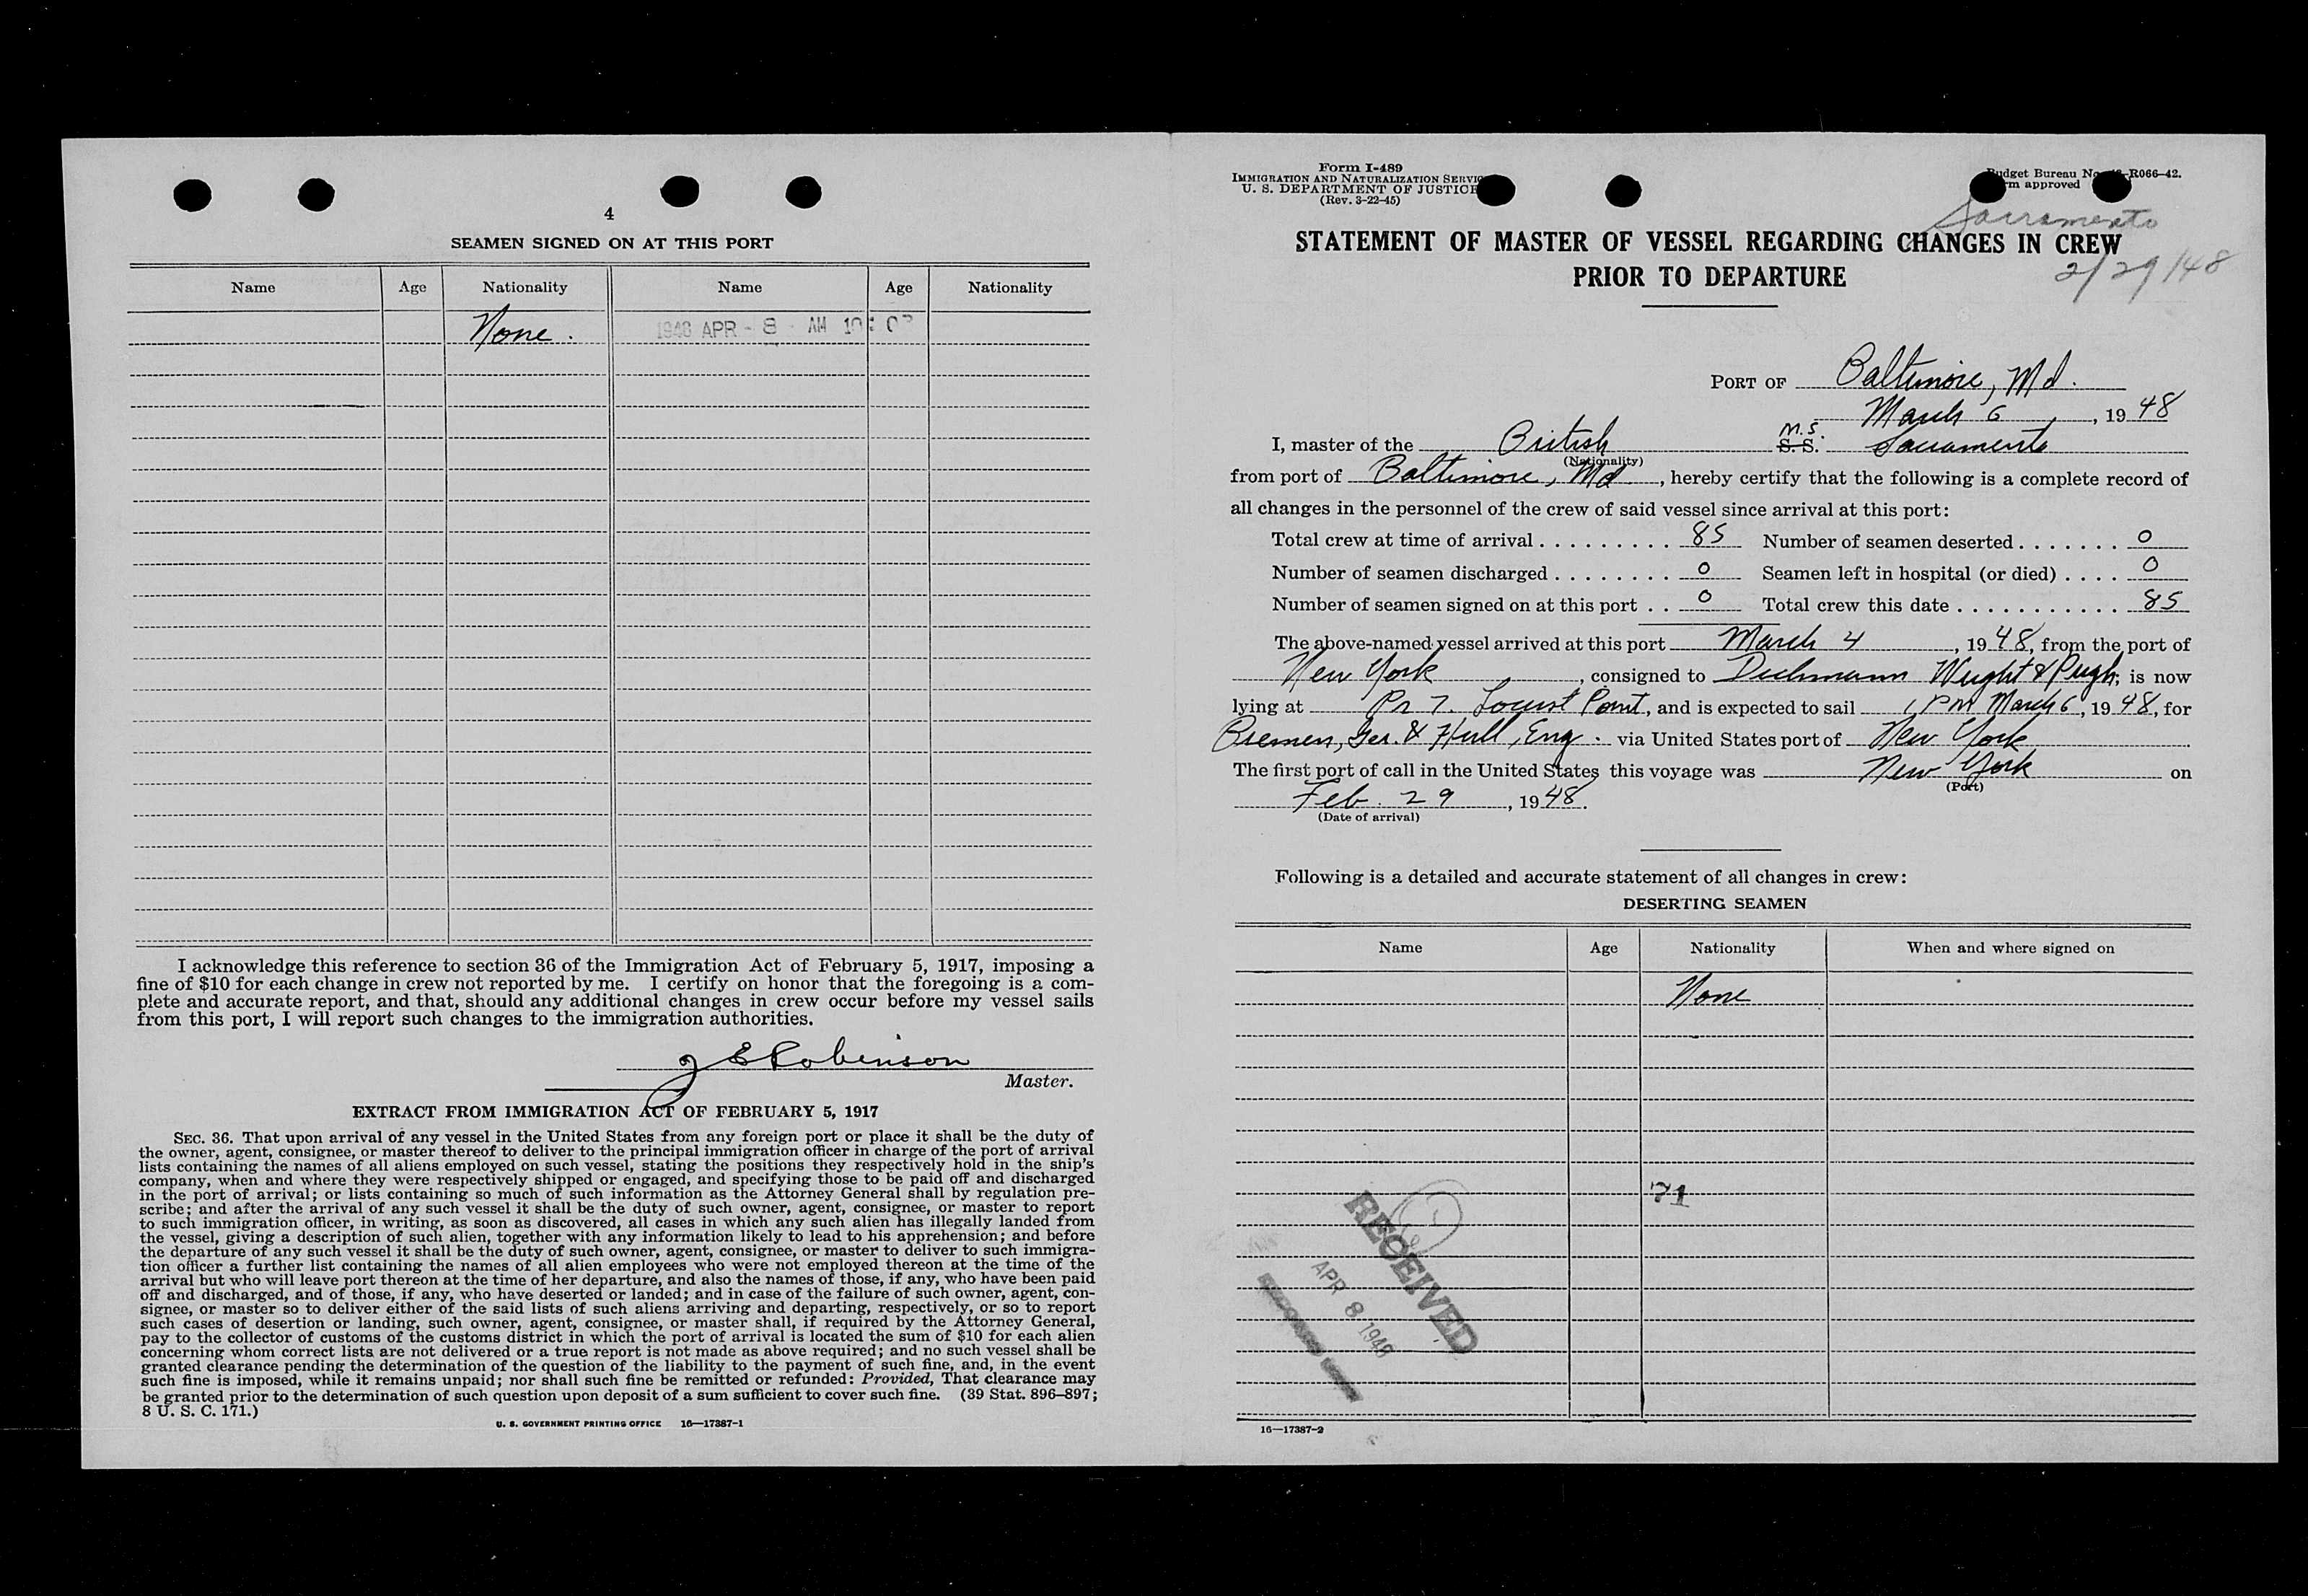 4
SEAMEN SIGNED ON AT THIS PORT
Name Age Nationality Name Age Nationality
None. 1948 APR - 8 - AM 10:0
I acknowledge this reference to section 36 of the Immigration Act of February 5, 1917, imposing a
fine of $10 for each change in crew not reported by me. I certify on honor that the foregoing is a com-
plete and accurate report, and that, should any additional changes in crew occur before my vessel sails
from this port, I will report such changes to the immigration authorities.
J E Robinson
Master.
EXTRACT FROM IMMIGRATION ACT OF FEBRUARY 5, 1917
SEC. 36. That upon arrival of any vessel in the United States from any foreign port or place it shall be the duty of
the owner, agent, consignee, or master thereof to deliver to the principal immigration officer in charge of the port of arrival
lists containing the names of all aliens employed on such vessel, stating the positions they respectively hold in the ship's
company, when and where they were respectively shipped or engaged, and specifying those to be paid off and discharged
in the port of arrival; or lists containing so much of such information as the Attorney General shall by regulation pre-
scribe; and after the arrival of any such vessel it shall be the duty of such owner, agent, consignee, or master to report
to such immigration officer, in writing, as soon as discovered, all cases in which any such alien has illegally landed from
the vessel, giving a description of such alien, together with any information likely to lead to his apprehension; and before
the departure of any such vessel it shall be the duty of such owner, agent, consignee, or master to deliver to such immigra-
tion officer a further list containing the names of all alien employees who were not employed thereon at the time of the
arrival but who will leave port thereon at the time of her departure, and also the names of those, if any, who have been paid
off and discharged, and of those, if any, who have deserted or landed; and in case of the failure of such owner, agent, con-
signee, or master so to deliver either of the said lists of such aliens arriving and departing, respectively, or so to report
such cases of desertion or landing, such owner, agent, consignee, or master shall, if required by the Attorney General,
pay to the collector of customs of the customs district in which the port of arrival is located the sum of $10 for each alien
concerning whom correct lists are not delivered or a true report is not made as above required; and no such vessel shall be
granted clearance pending the determination of the question of the liability to the payment of such fine, and, in the event
such fine is imposed, while it remains unpaid; nor shall such fine be remitted or refunded: Provided, That clearance may
be granted prior to the determination of such question upon deposit of a sum sufficient to cover such fine. (39 Stat. 896–897;
8 U. S. C. 171.)
U. S. GOVERNMENT PRINTING OFFICE 16—17387-1
Form I-489
IMMIGRATION AND NATURALIZATION SERVIC
U. S. DEPARTMENT OF JUSTICE
(Rev. 3-22-45)
Budget Bureau No. R066-42.
approved
Sacramento
STATEMENT OF MASTER OF VESSEL REGARDING CHANGES IN CREW
PRIOR TO DEPARTURE
2/29/48
PORT OF Baltimore, Md.
March 6, 1948
I, master of the British M.S. S.S. Sacramento
(Nationality)
from port of Baltimore, Md, hereby certify that the following is a complete record of
all changes in the personnel of the crew of said vessel since arrival at this port:
Total crew at time of arrival . . . . . . . . . . 85 Number of seamen deserted . . . . . . . 0
Number of seamen discharged . . . . . . . . 0 Seamen left in hospital (or died) . . . . 0
Number of seamen signed on at this port . . 0 Total crew this date . . . . . . . . . . . 85
The above-named vessel arrived at this port March 4, 1948, from the port of
New York, consigned to Dichmann Wright & Pugh; is now
lying at Pr 7. Locust Point, and is expected to sail 1 PM March 6, 1948, for
Bremen, Ger. & Hull, Eng. via United States port of New York
The first port of call in the United States this voyage was New York on
(Port)
Feb. 29, 1948.
(Date of arrival)
Following is a detailed and accurate statement of all changes in crew:
DESERTING SEAMEN
Name Age Nationality When and where signed on
None
71
RECEIVED
APR 8 1948
16—17387-2